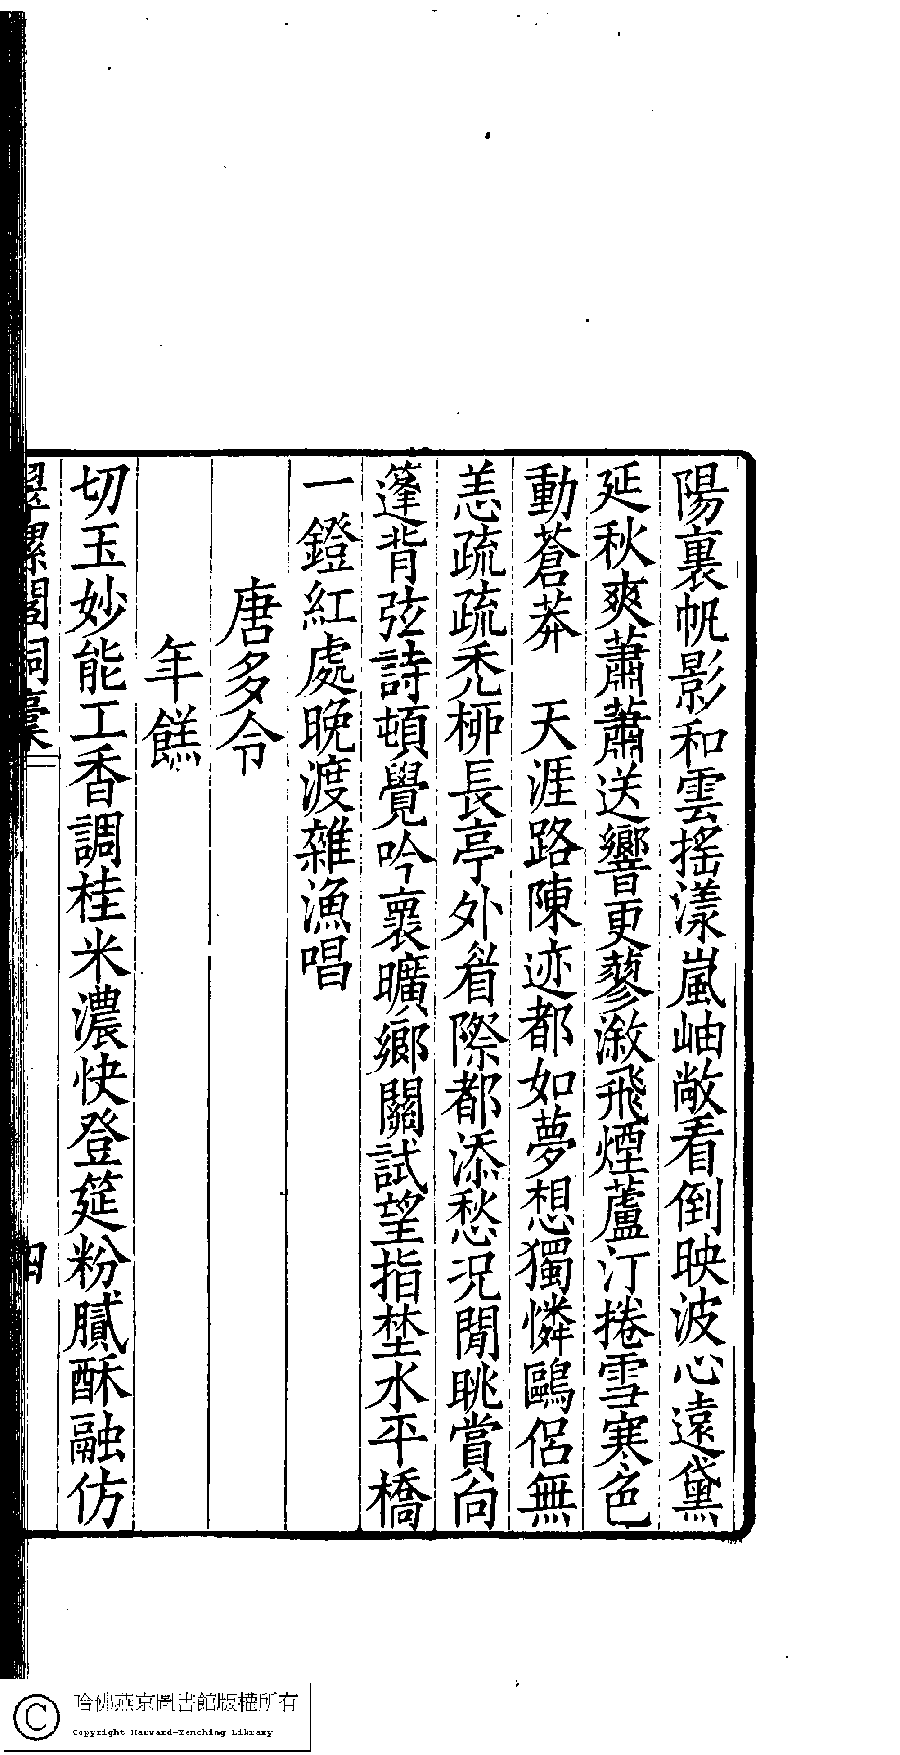 陽裏帆影和雲搖漾嵐岫敞看倒映波心遠黛
延秋爽蕭蕭送響更蓼漵飛煙蘆汀捲雪寒色
動蒼莽　天涯路陳迹都如夢想獨憐鷗侶無
恙疏疏禿柳長亭外眉際都添愁況閒眺賞向
篷背弦詩頓覺吟褱曠鄉關試望指埜水平橋
一鐙紅處晚渡雜漁唱
唐多令
年餻
切玉妙能工香調桂米濃快登筵粉膩酥融仿
翠螺閣詞稾
四
哈佛燕京圖書館版權所有
Copyright Harvard-Yenching Library